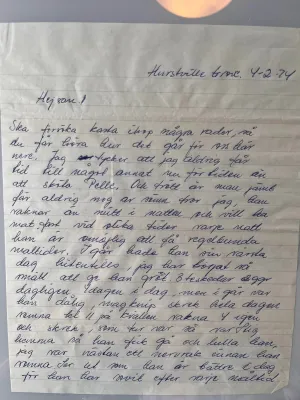 Hurstville 4-2-74
Hejsan!
Ska försöka kasta ihop några rader, så
du får höra hur det går för oss här
nere. Jag tycker att jag aldrig får
tid till något annat nu för tiden än
att sköta Pelle. Och trött är man jämt
får aldrig nog av sömn tror jag. Han
vaknar en natt i natten och vill ha
mat vid olika tider varje natt
han är omöjlig att få regelbunda
måltider. Igår hade han nu värsta
dag hittentills, jag har börjat så
smått att ge han gröt 3 teskedar
dagligen. 1 dagen i dag, men i går var
han dålig magknip skrek hela dagen
somna kl 11 på kvällen vakna 4 igen
och skrek, som tur var så var
hemma så han fick gå och hulla han,
jag var nästan ett nervvrak innan han
somna för att som han är bättre i dag
för han har sovit efter varje måltid